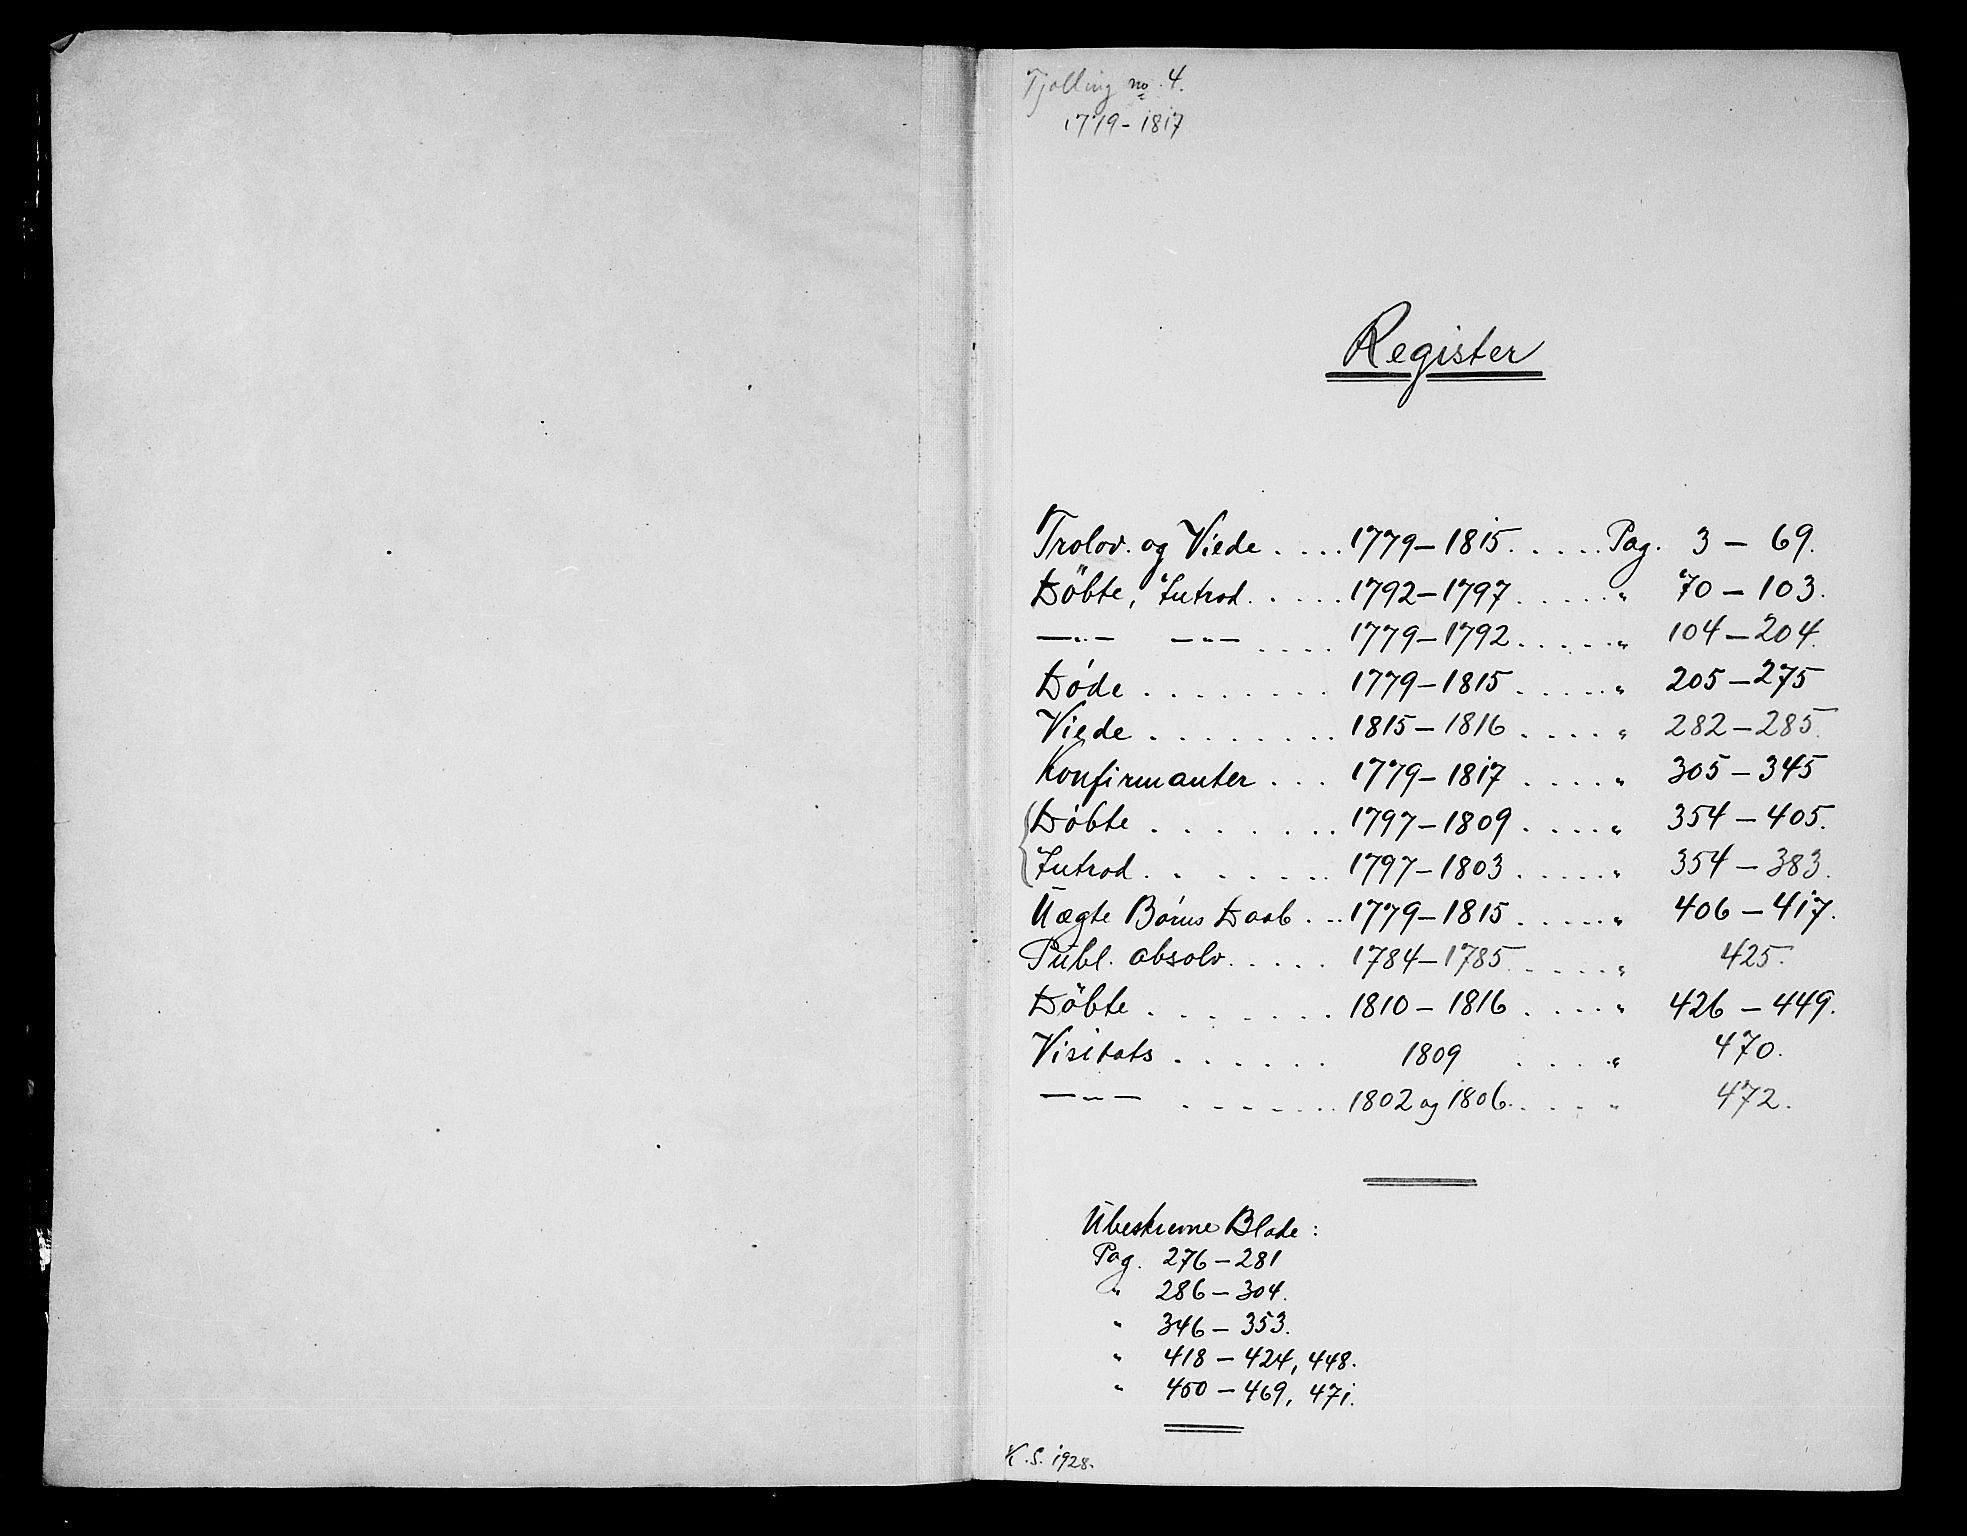 Tjølling no. 4.
1779-1817
Register
Trolov. og Viede .... 1779-1815 ..... Pag. 3 - 69.
Döbte, Introd. .... 1792-1797 ..... " 70 - 103.
—"— —"— .... 1779-1792 ..... " 104 - 204.
Døde ........ 1779-1815 ..... " 205 - 275
Viede ........ 1815-1816 .... " 282 - 285.
Konfirmanter ... 1779-1817 .... " 305 - 345
Døbte ....... 1797-1809 .... " 354 - 405.
Introd. ...... 1797-1803 ..... " 354 - 383.
Uægte Børns Daab ... 1779-1815 ..... " 406 - 417.
Publ. absolv. .... 1784-1785 ..... " 425.
Döbte ....... 1810-1816 .... " 426 - 449.
Visitats ...... 1809 .... " 470.
—"— ...... 1802 og 1806. .... " 472.
Ubeskrevne Blade :
Pag. 276 - 281
" 286 - 304.
" 346 - 353.
" 418 - 424, 448.
" 450 - 469, 471.
K.S. 1928.